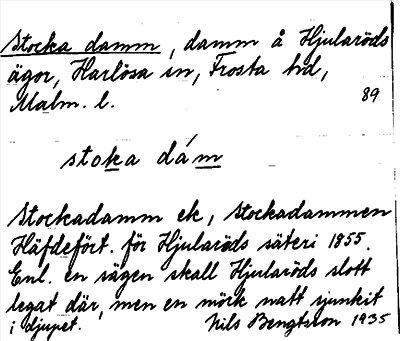 Stocka damm, damm å Hjularöds
ägor, Harlösa sn, Frosta hd,
Malm. l. 89
stoka dám
Stockadamm ek, Stockadammen
Häfdefört. för Hjularöds säteri 1855.
Enl. en sägen skall Hjularöds slott
legat där, men en mörk natt sjunkit
i djupet. Nils Bengtsson 1935